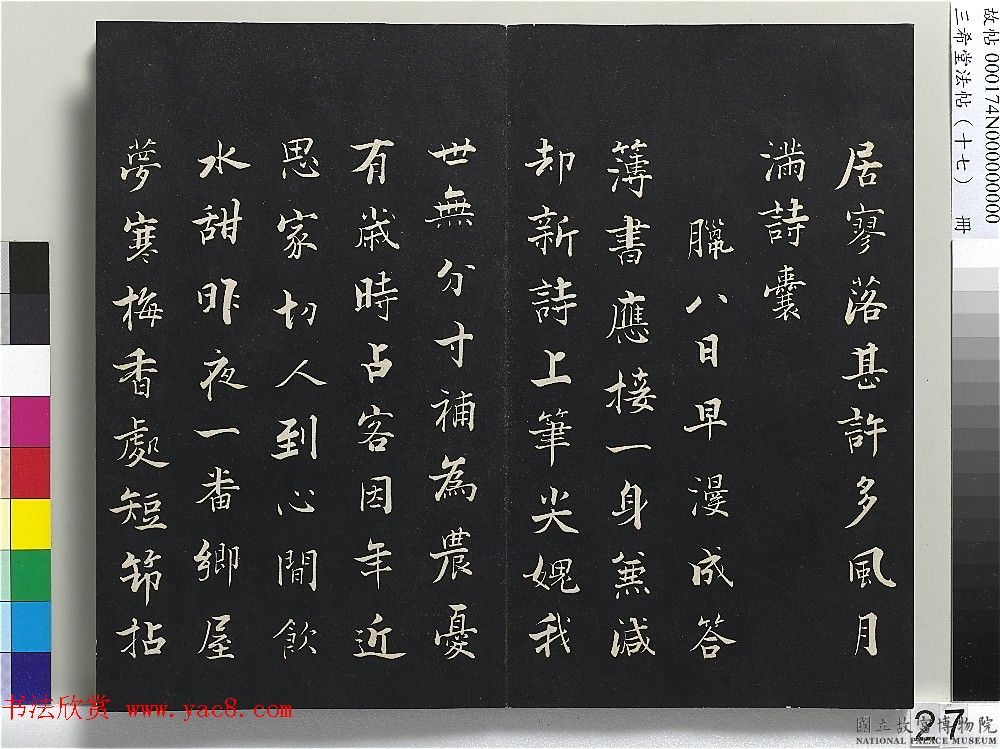 居寥落甚許多風月
滿詩囊
臘八日早漫成答
簿書應接一身無減
却新詩上筆尖媿我
世無分寸補為農憂
有歲時占客因年近
思家切人到心閒飲
水甜昨夜一番鄉屋
夢寒梅香處短筇拈
故帖000174N000000000
三希堂法帖(十七) 冊
27
書法欣赏 www.yac8.com
國立故宮博物院
NATIONAL PALACE MUSEUM